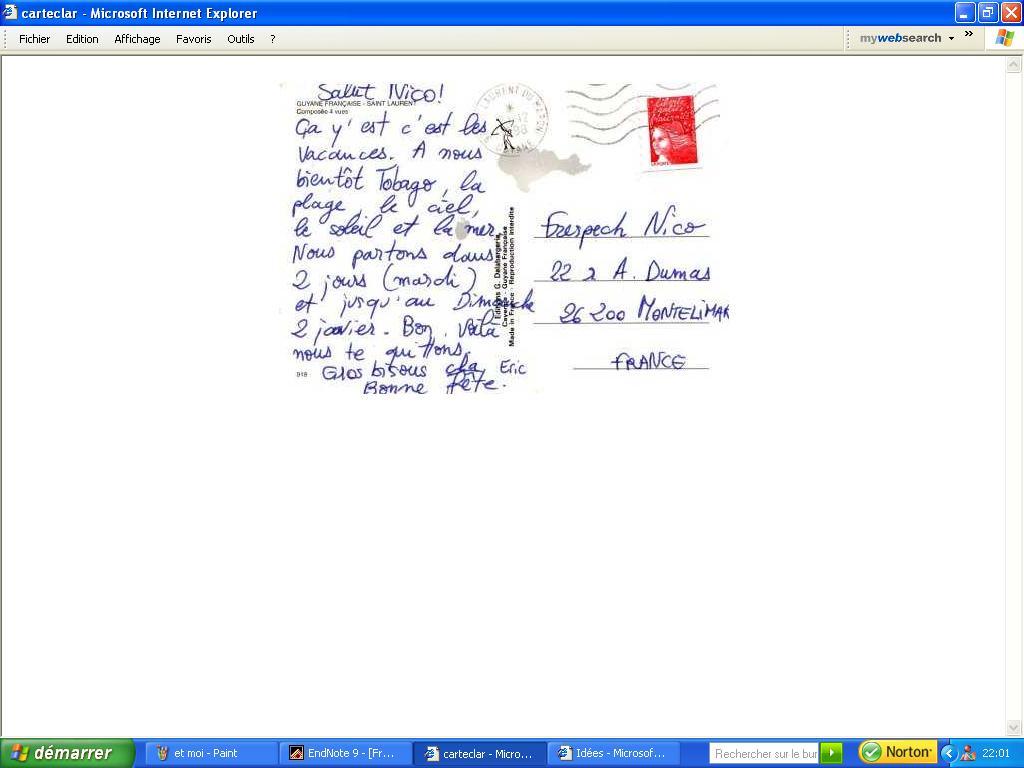 carteclar - Microsoft Internet Explorer
Fichier Edition Affichage Favoris Outils ?
mywebsearch
Salut Nico!
GUYANE FRANÇAISE - SAINT LAURENT
Composée 4 vues
Ça y'est c'est les
Vacances. A nous
bientôt Tobago, la
plage, le ciel,
le soleil et la mer.
Nous partons dans
2 jours (mardi)
et jusqu'au Dimanche
2 janvier. Bon, Voilà
nous te quittons,
Gros bisous Eric
Bonne fête.
918
Editions G. Delabergerie
Cayenne - Guyane Française
Made in France - Reproduction interdite
LAURENT DU MARONI
GUYANE
LA POSTE
Nico
22 2 A. Dumas
26 200 MONTELIMAR
FRANCE
démarrer
et moi - Paint
EndNote 9 - [Fr...
carteclar - Micro...
Idées - Microsof...
Rechercher sur le bur
Norton
22:01